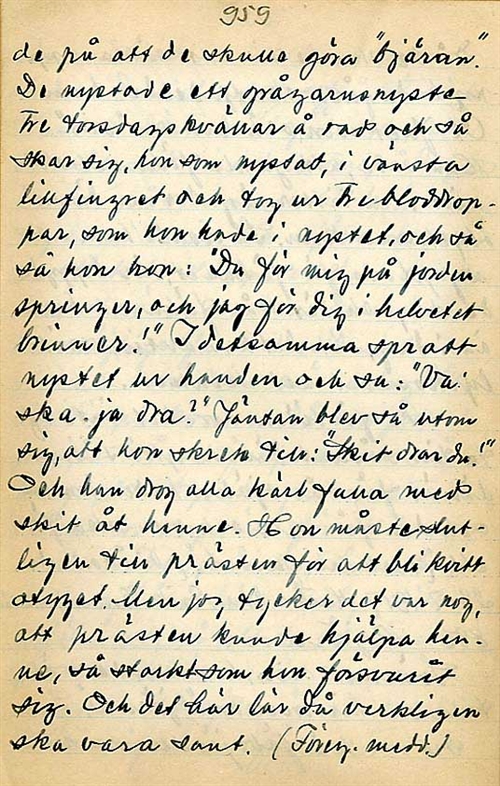 959
de på att de skulle göra "bjäran".
De nystade ett grågarnsnyste
tre torsdagskvällar å rad och så
skar sig, hon som nystat, i vänstra
lillfingret och tog ur tre bloddrop-
par, som hon hade i nystet, och så
sa hon hon: "Du för mig på jorden
springer, och jag för dig i helvetet
brinner!" I detsamma spratt
nystet ur handen och sa: "Va'
ska ja dra?" Jäntan blev så utom
sig, att hon skrek till: "Skit drar du!"
Och han drog alla kärl fulla med
skit åt henne. Hon måste slut-
ligen till prästen för att bli kvitt
otyget. Men jag tycker det var nog,
att prästen kunde hjälpa hen-
ne, så starkt som hon försvurit
sig. Och det här lär då verkligen
ska vara sant. (Föreg. medd.)